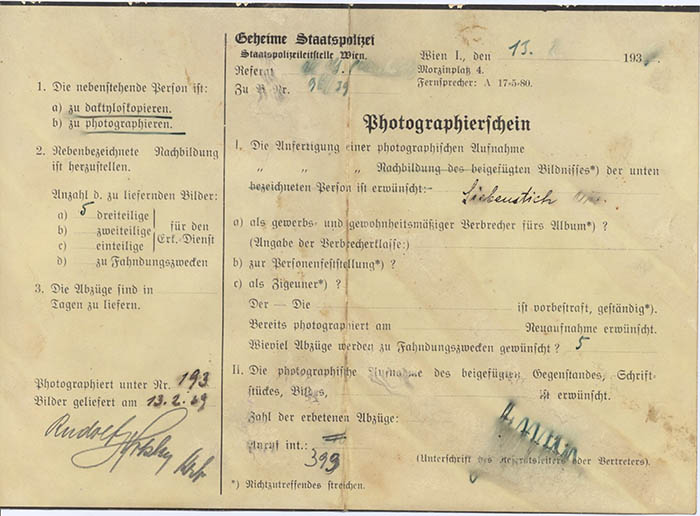 Geheime Staatspolizei
Staatspolizeileitstelle Wien.
Referat
Zu B.-Nr.
Wien I., den 13. 193
Morzinplatz 4.
Fernsprecher: A 17-5-80.
1. Die nebenstehende Person ist:
a) zu daktyloskopieren.
b) zu photographieren.
2. Nebenbezeichnete Nachbildung
ist herzustellen.
Anzahl d. zu liefernden Bilder:
a) 5 dreiteilige
b) zweiteilige
c) einteilige
für den
Erk.-Dienst
d) zu Fahndungszwecken
3. Die Abzüge sind in
Tagen zu liefern.
Photographiert unter Nr. 193
Bilder geliefert am 13.2.39
Rudolf
Photographierschein
I. Die Anfertigung einer photographischen Aufnahme
" " " Nachbildung des beigefügten Bildnisses*) der unten
bezeichneten Person ist erwünscht:-
Liebenstich
a) als gewerbs- und gewohnheitsmäßiger Verbrecher fürs Album*) ?
(Angabe der Verbrecherklasse:)
b) zur Personenfeststellung*) ?
c) als Zigeuner*) ?
Der - Die ist vorbestraft, geständig*).
Bereits photographiert am Neuaufnahme erwünscht.
Wieviel Abzüge werden zu Fahndungszwecken gewünscht ? 5
II. Die photographische Aufnahme des beigefügten Gegenstandes, Schrift-
stückes, Bildes, ist erwünscht.
Zahl der erbetenen Abzüge:
Anruf int.:
393
(Unterschrift des Referatsleiters oder Vertreters).
*) Nichtzutreffendes streichen.